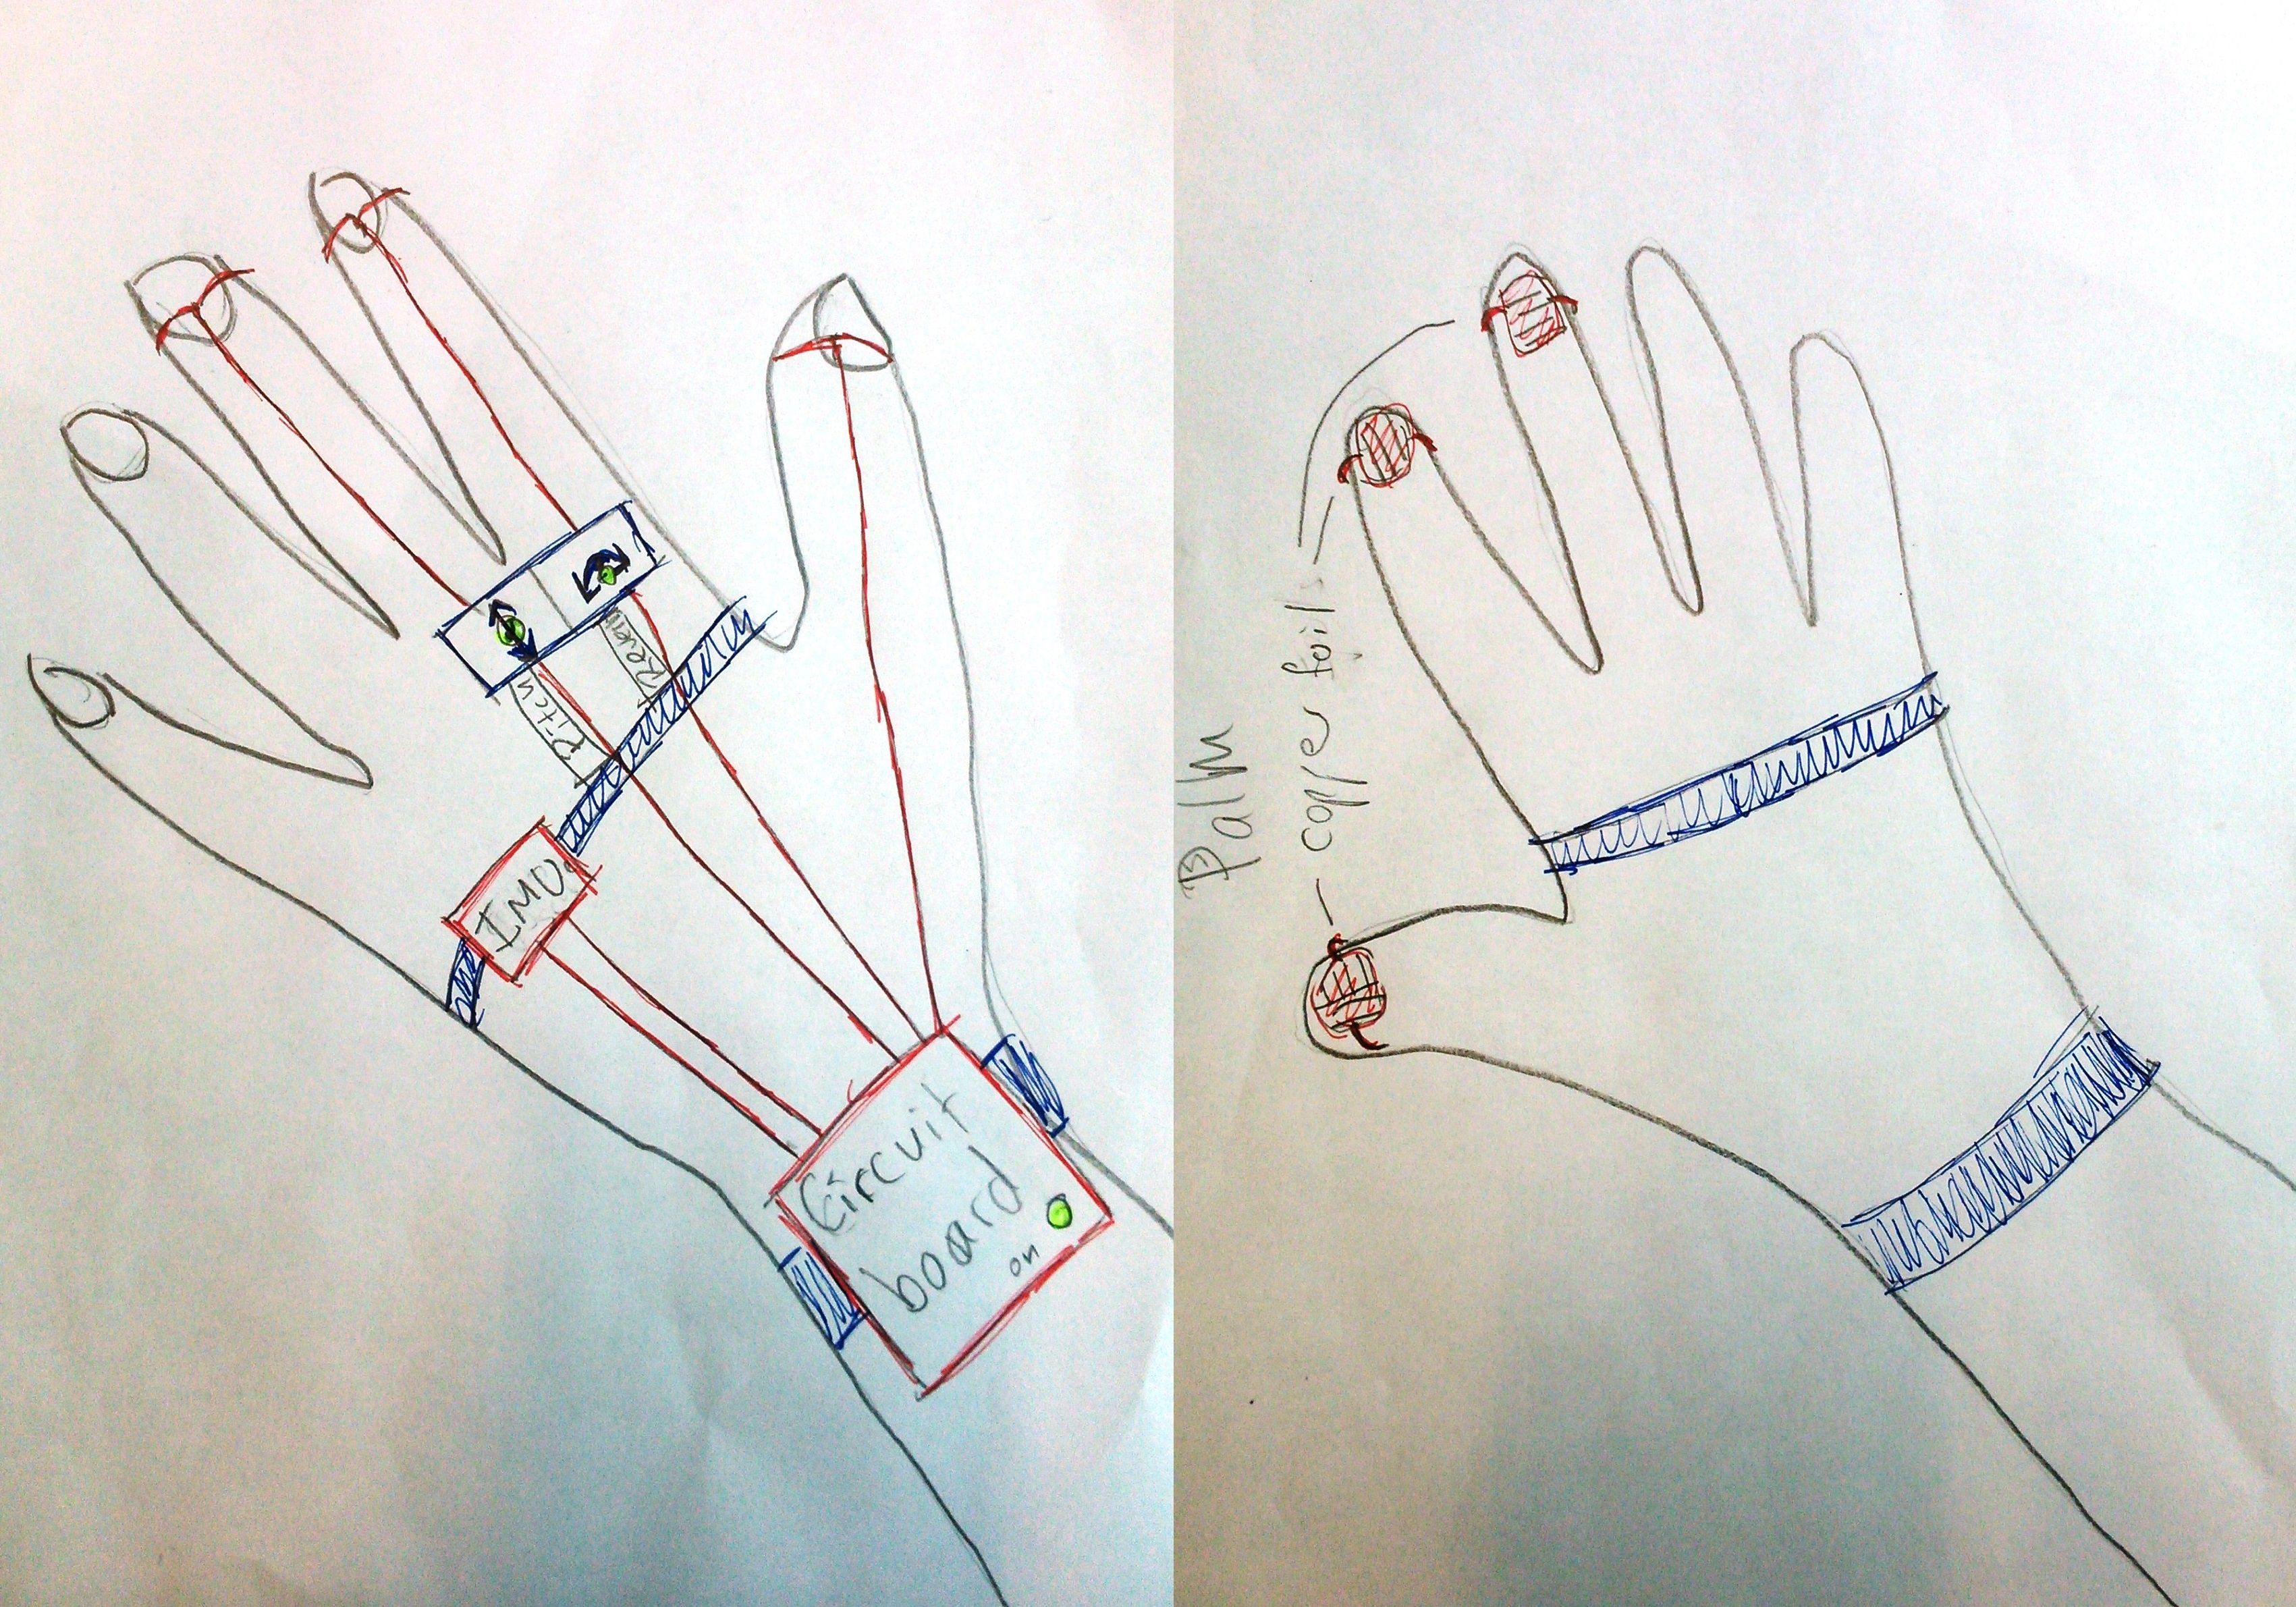 Pitch
IMU
Circuit
board
on
Palm
copper foils